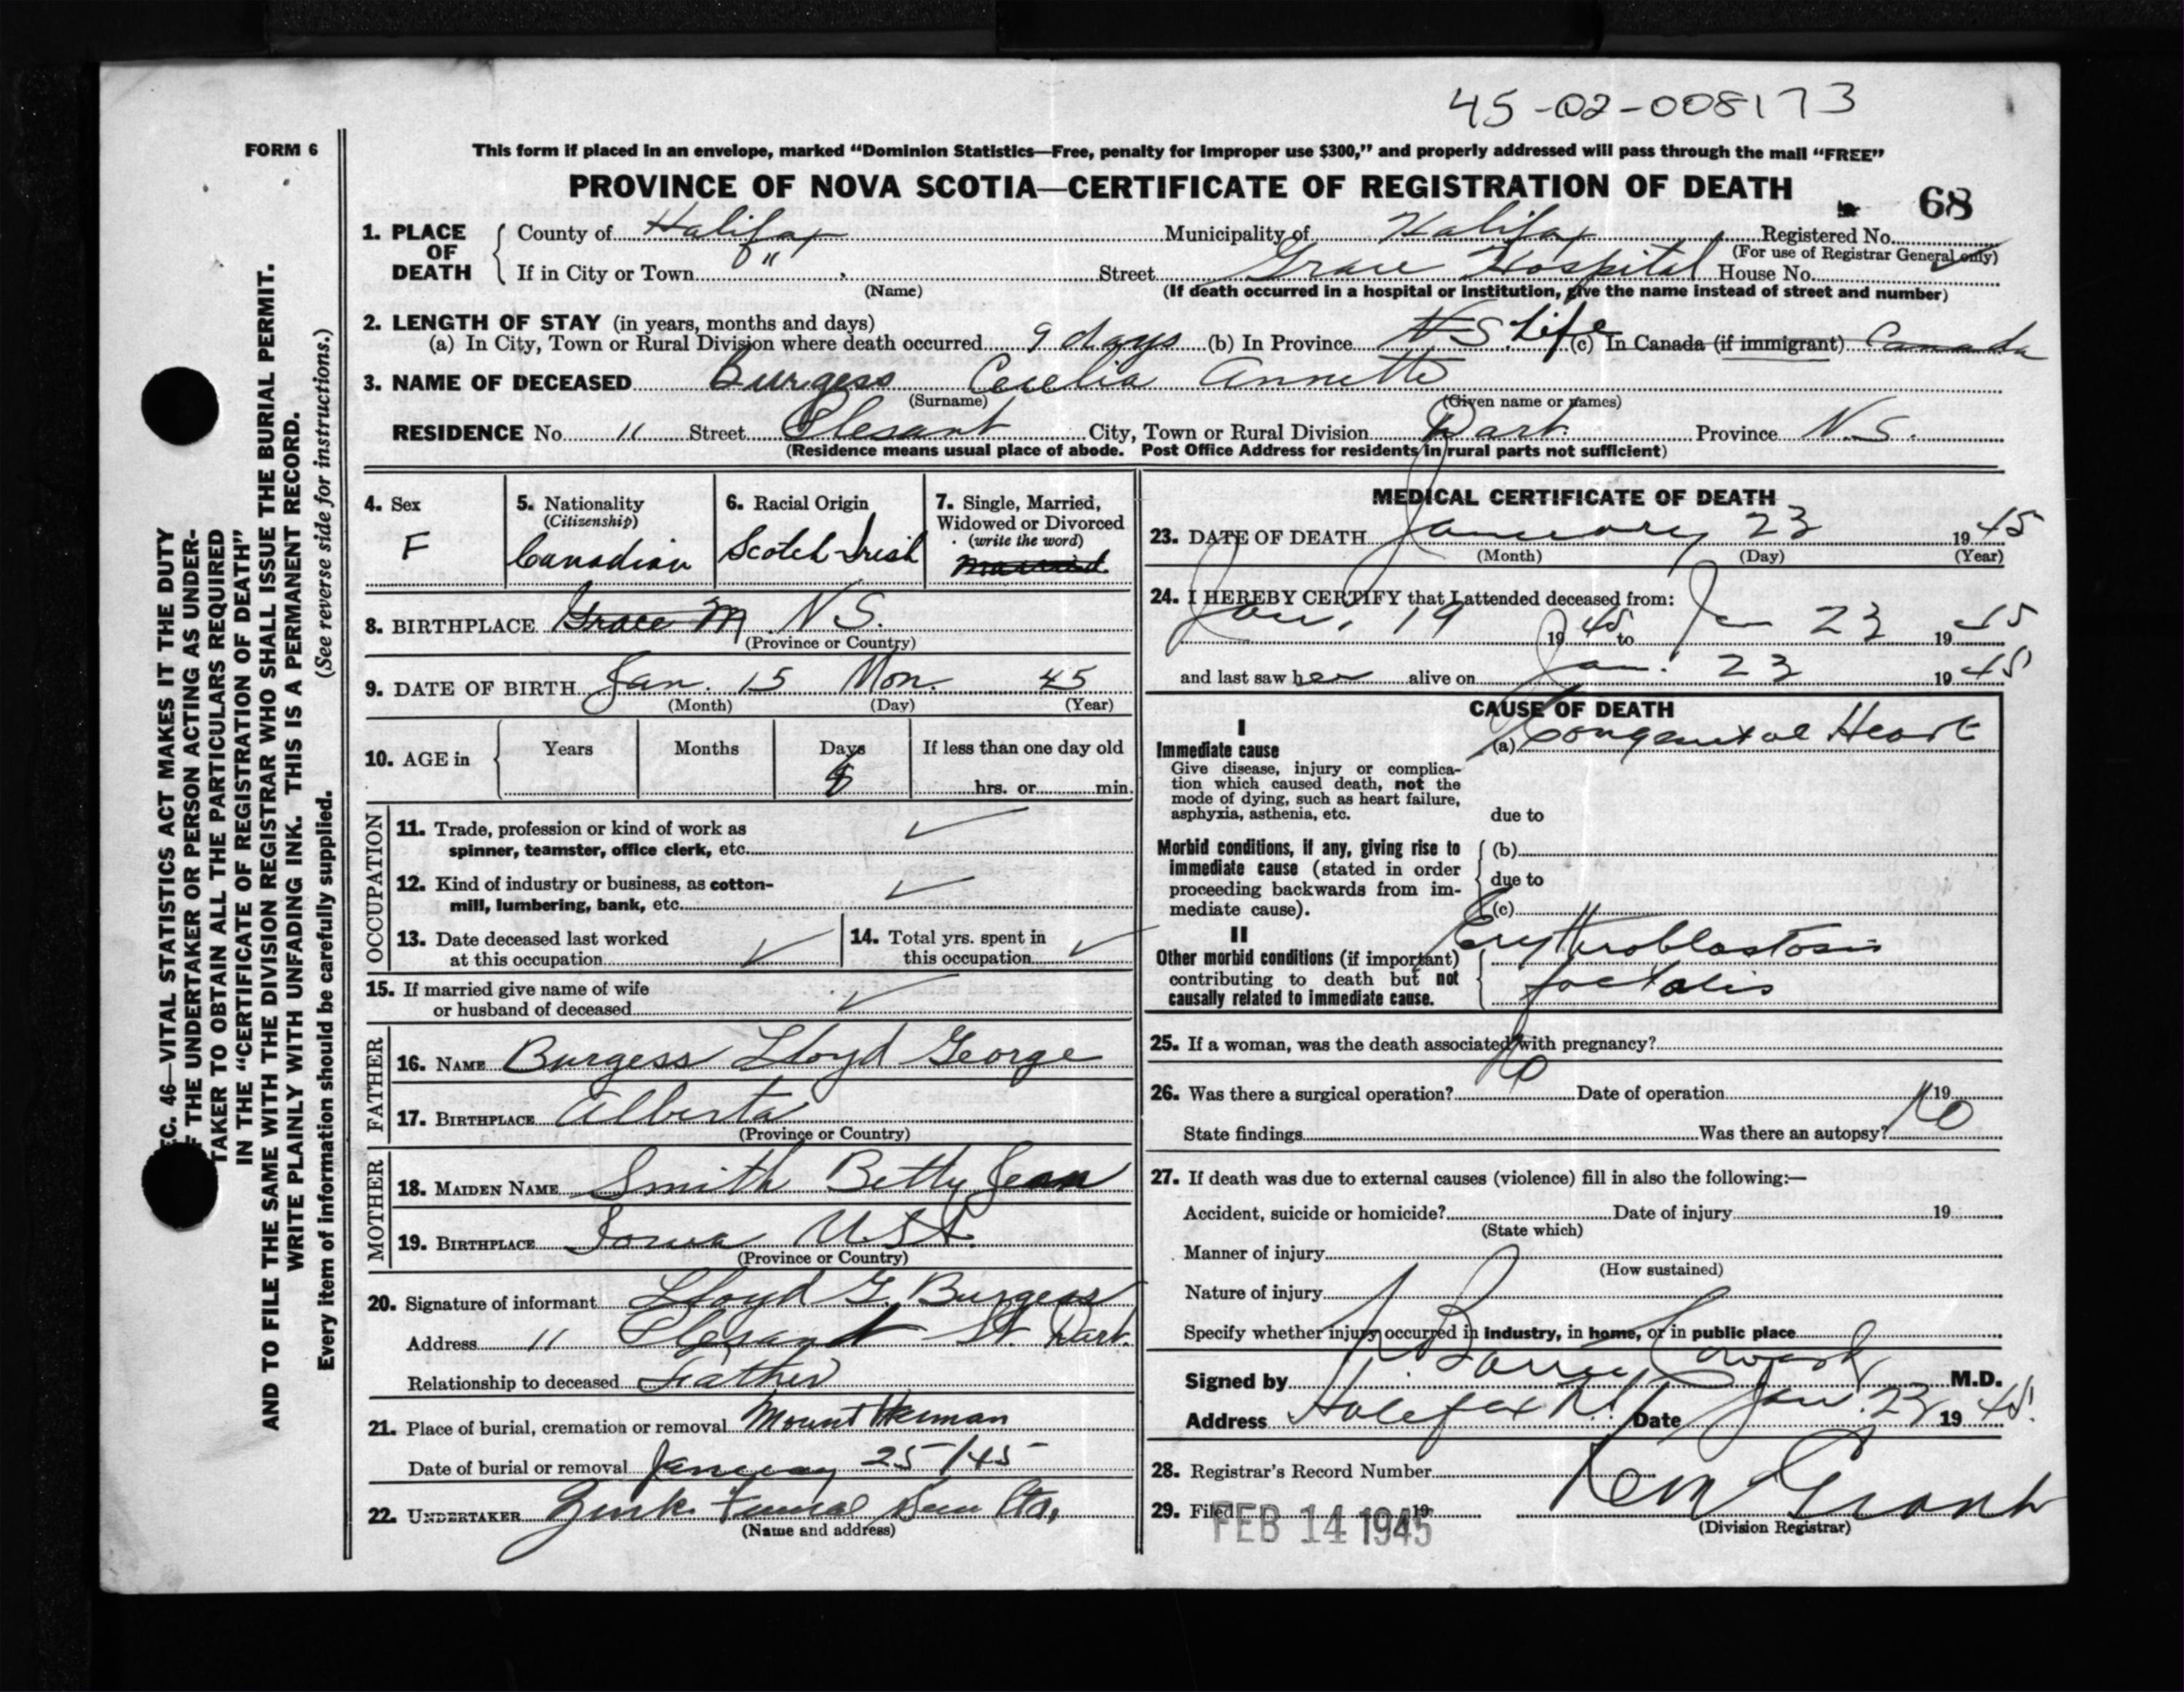 45-02-008173
FORM 6
This form if placed in an envelope, marked “Dominion Statistics—Free, penalty for improper use $300,” and properly addressed will pass through the mail “FREE”
PROVINCE OF NOVA SCOTIA—CERTIFICATE OF REGISTRATION OF DEATH
68
1. PLACE OF DEATH
County of Halifax Municipality of Halifax Registered No.
(For use of Registrar General only)
If in City or Town " Street Grace Hospital House No.
(Name) (If death occurred in a hospital or institution, give the name instead of street and number)
2. LENGTH OF STAY (in years, months and days)
(a) In City, Town or Rural Division where death occurred 9 days (b) In Province N S. Life (c) In Canada (if immigrant) Canada
3. NAME OF DECEASED Burgess Cecelia Annette
(Surname) (Given name or names)
RESIDENCE No. 11 Street Plesant City, Town or Rural Division Dart. Province N.S.
(Residence means usual place of abode. Post Office Address for residents in rural parts not sufficient)
4. Sex
F
5. Nationality
(Citizenship)
Canadian
6. Racial Origin
Scotch-Irish
7. Single, Married,
Widowed or Divorced
(write the word)
Married
8. BIRTHPLACE Grace M N S.
(Province or Country)
9. DATE OF BIRTH Jan. 15 Mon. 45
(Month) (Day) (Year)
10. AGE in
Years Months Days If less than one day old
8 hrs. or min.
OCCUPATION
11. Trade, profession or kind of work as
spinner, teamster, office clerk, etc.
12. Kind of industry or business, as cotton-
mill, lumbering, bank, etc.
13. Date deceased last worked
at this occupation
14. Total yrs. spent in
this occupation
15. If married give name of wife
or husband of deceased
FATHER
16. NAME Burgess Lloyd George
17. BIRTHPLACE Alberta
(Province or Country)
MOTHER
18. MAIDEN NAME Smith Betty Jean
19. BIRTHPLACE Iowa U.S.A.
(Province or Country)
20. Signature of informant Lloyd G. Burgess
Address 11 Plesant St. Dart.
Relationship to deceased Father
21. Place of burial, cremation or removal Mount Herman
Date of burial or removal January 25/45
22. UNDERTAKER Zink Funeral Ltd.
(Name and address)
MEDICAL CERTIFICATE OF DEATH
23. DATE OF DEATH January 23 1945
(Month) (Day) (Year)
24. I HEREBY CERTIFY that I attended deceased from:
Jan. 19 1945 to Jan 23 1945
and last saw her alive on Jan. 23 1945
CAUSE OF DEATH
I
Immediate cause
Give disease, injury or complica-
tion which caused death, not the
mode of dying, such as heart failure,
asphyxia, asthenia, etc.
(a) Congenital Heart
due to
Morbid conditions, if any, giving rise to
immediate cause (stated in order
proceeding backwards from im-
mediate cause).
(b)
due to
(c)
II
Other morbid conditions (if important)
contributing to death but not
causally related to immediate cause.
Erythroblastosis
foetalis
25. If a woman, was the death associated with pregnancy?
26. Was there a surgical operation? No Date of operation 19
State findings Was there an autopsy? No
27. If death was due to external causes (violence) fill in also the following:—
Accident, suicide or homicide? Date of injury 19
(State which)
Manner of injury
(How sustained)
Nature of injury
Specify whether injury occurred in industry, in home, or in public place
Signed by N Barrie Coward M.D.
Address Halifax N.S. Date Jan. 23 1945
28. Registrar's Record Number
29. Filed 19
FEB 14 1945
Grant
(Division Registrar)
EC. 46—VITAL STATISTICS ACT MAKES IT THE DUTY
F THE UNDERTAKER OR PERSON ACTING AS UNDER-
TAKER TO OBTAIN ALL THE PARTICULARS REQUIRED
IN THE “CERTIFICATE OF REGISTRATION OF DEATH”
AND TO FILE THE SAME WITH THE DIVISION REGISTRAR WHO SHALL ISSUE THE BURIAL PERMIT.
WRITE PLAINLY WITH UNFADING INK. THIS IS A PERMANENT RECORD.
Every item of information should be carefully supplied. (See reverse side for instructions.)